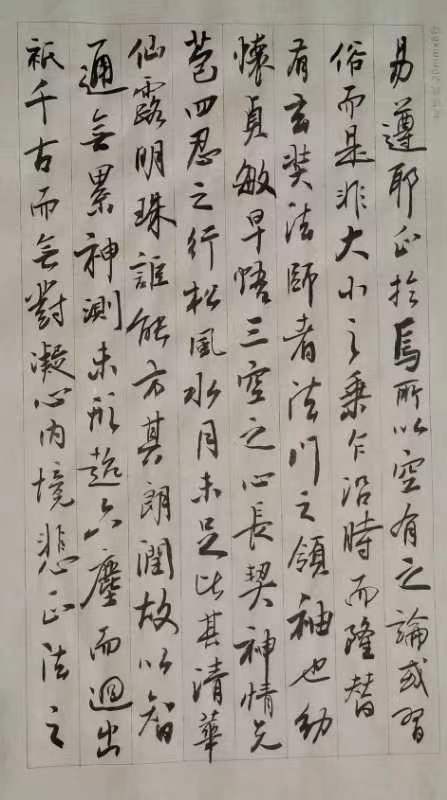 易遵耶正於焉所以空有之論或習
俗而是非大小之乘乍沿時而隆替
有玄奘法師者法門之領袖也幼
懷貞敏早悟三空之心長契神情先
苞四忍之行松風水月未足比其清華
仙露明珠詎能方其朗潤故以智
通無累神測未形超六塵而迥出
袛千古而無對凝心內境悲正法之